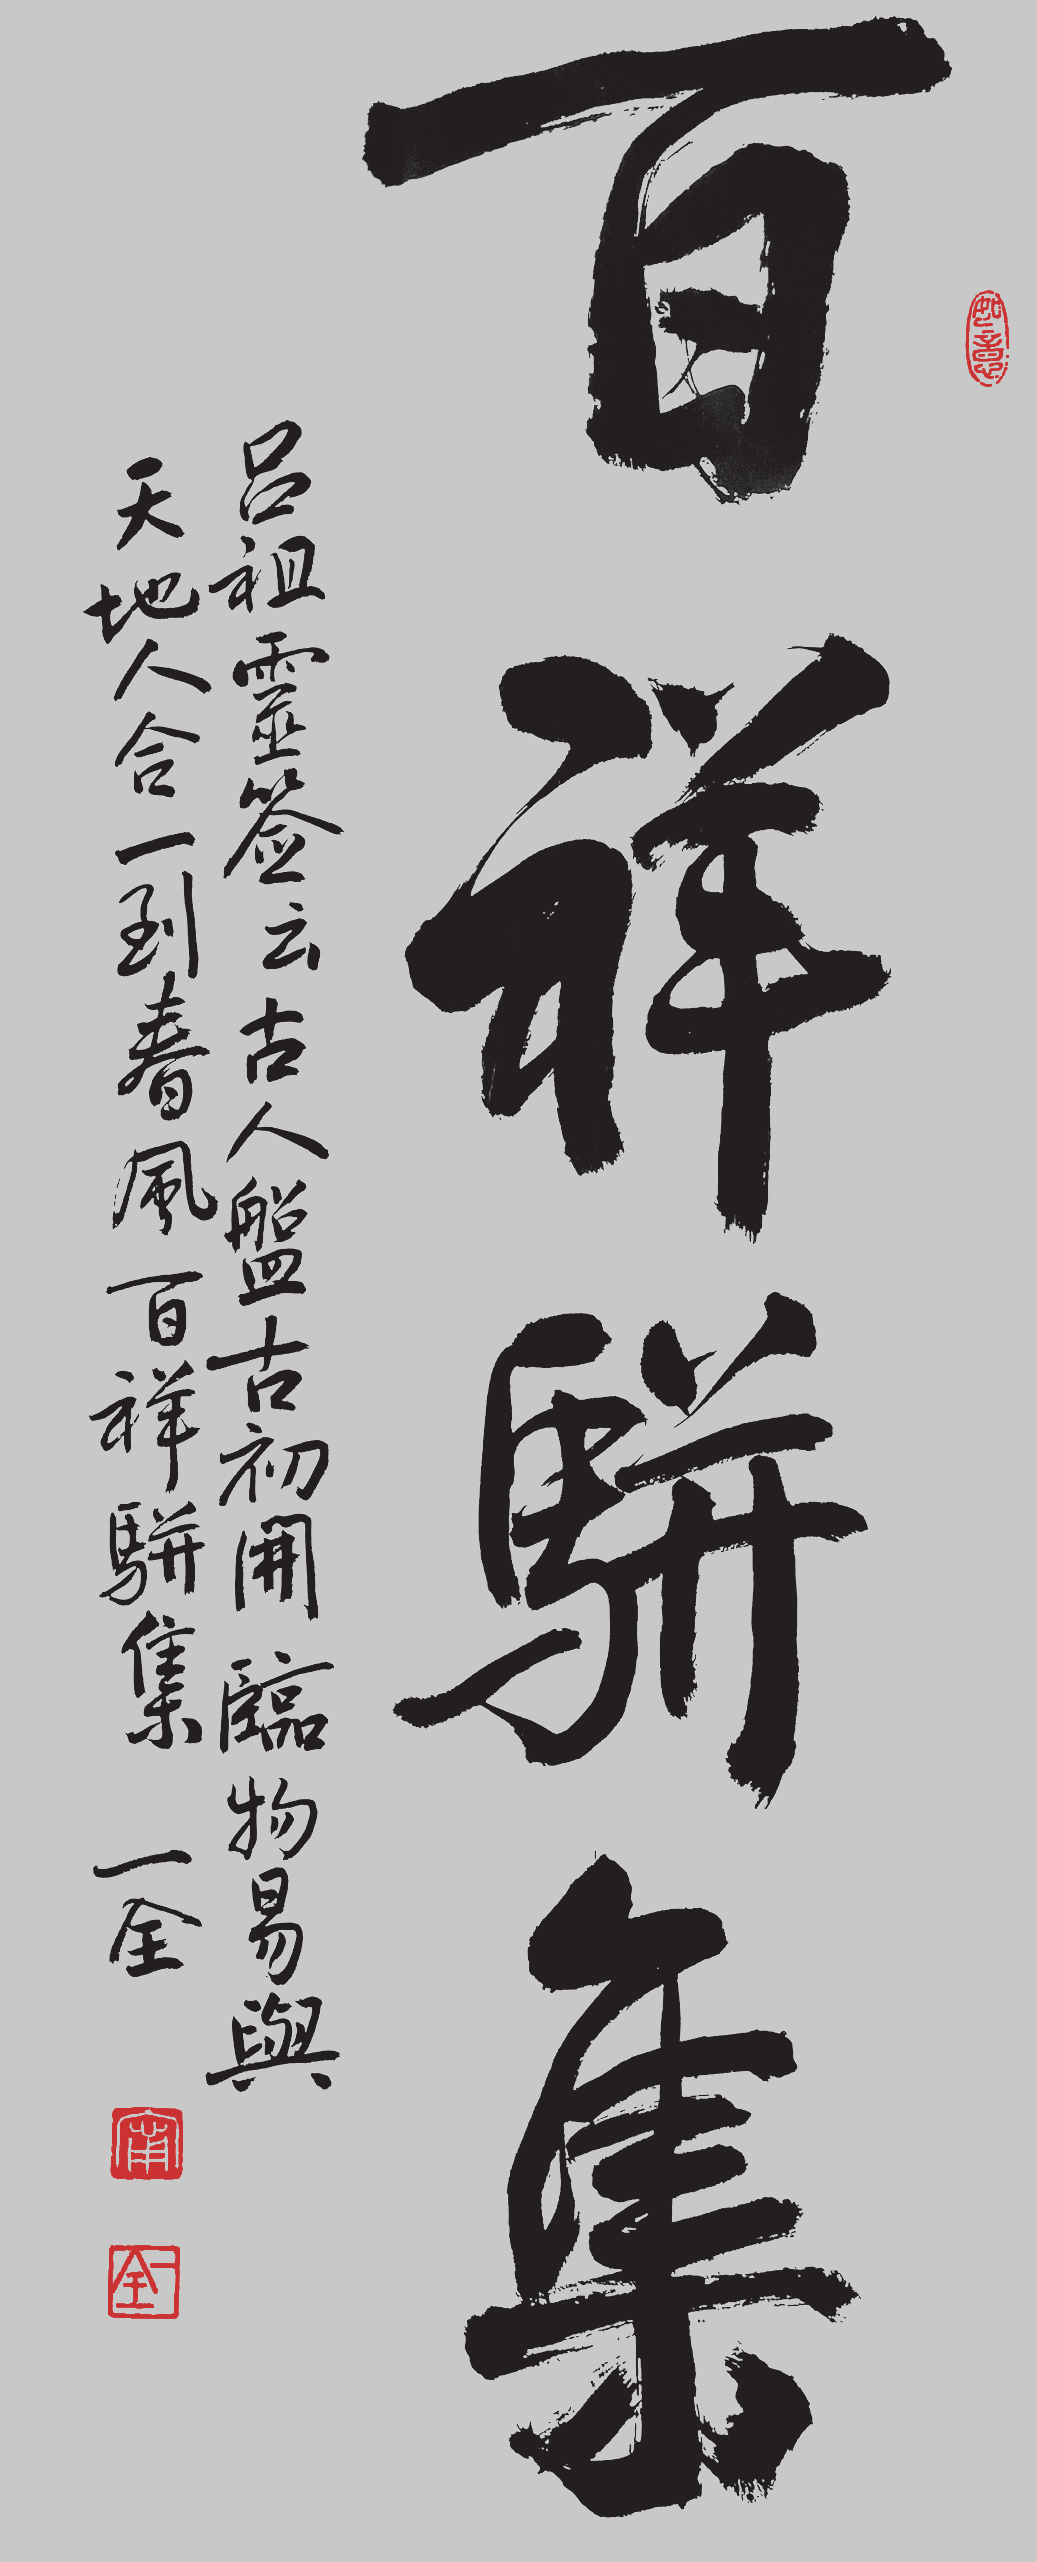 百祥駢集
如意
吕祖靈签云古人盤古初開臨物易與
天地人合一到春風百祥駢集
一全
一全